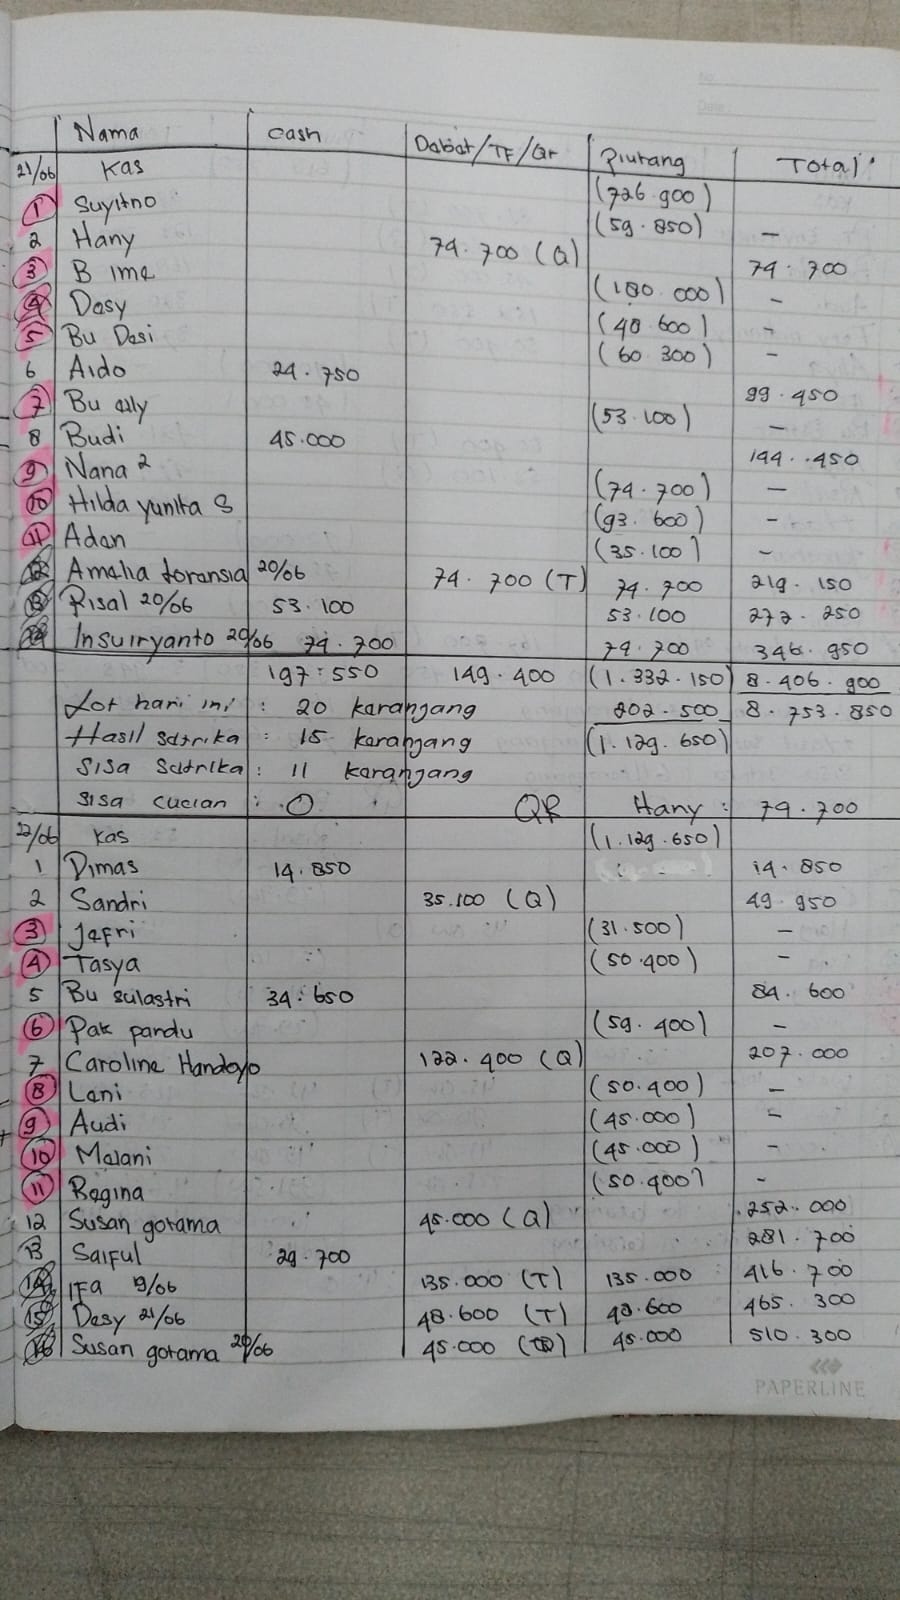 No
Date
Nama Cash Debet/TF/Qr Piutang Total
21/06 Kas (726.900)
1 Suyitno (59.850) —
2 Hany 74.700 (Q) 74.700
3 B ime (180.000) —
4 Desy (48.600) —
5 Bu Desi (60.300) —
6 Aldo 24.750 99.450
7 Bu elly (53.100) —
8 Budi 45.000 144.450
9 Nana 2 (74.700) —
10 Hilda yunita S (93.600) —
11 Aden (35.100) —
12 Amelia foransia 20/06 74.700 (T) 74.700 219.150
13 Risal 20/06 53.100 53.100 272.250
14 Insuiryanto 20/06 74.700 74.700 346.950
197.550 149.400 (1.332.150) 8.406.900
Lot hari ini : 20 keranjang 202.500 8.753.850
Hasil setrika : 15 keranjang (1.129.650)
Sisa Setrika : 11 keranjang
Sisa cucian : 0 QR Hany : 74.700
22/06 Kas (1.129.650)
1 Dimas 14.850 14.850
2 Sandri 35.100 (Q) 49.950
3 Jefri (31.500) —
4 Tasya (50.400) —
5 Bu sulastri 34.650 84.600
6 Pak pandu (59.400) —
7 Caroline Handoyo 122.400 (Q) 207.000
8 Leni (50.400) —
9 Audi (45.000) —
10 Melani (45.000) —
11 Regina (50.400) —
12 Susan gotama 45.000 (Q) 252.000
13 Saiful 29.700 281.700
14 IFa 9/06 135.000 (T) 135.000 416.700
15 Desy 21/06 48.600 (T) 48.600 465.300
16 Susan gotama 20/06 45.000 45.000 510.300
PAPERLINE